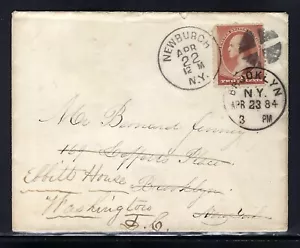 NEWBURGH
APR
22
12 M
N.Y.
BROOKLYN
N.Y.
APR 23 84
3 PM
TWO CENTS
Mr Bernard
Place
Ebbitt House Brooklyn
Washington
D. C.